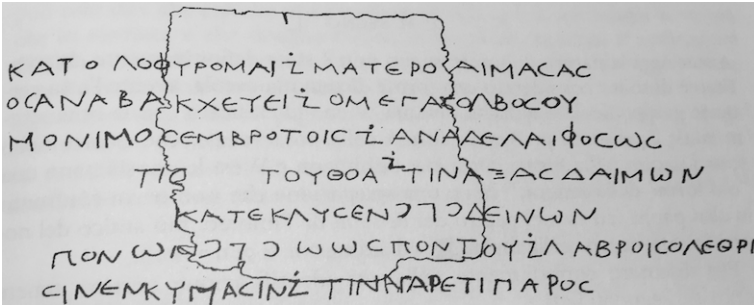 ΚΑΤΟΛΟΦΥΡΟΜΑΙŻΜΑΤΕΡΟ ΑΙΜΑϹΑϹ
ΟϹΑΝΑΒΑΚΧΕΥΕΙŻΟΜΕΓΑϹΟΛΒΟϹΟΥ
ΜΟΝΙΜΟϹΕΜΒΡΟΤΟΙϹŻΑΝΑΔΕΛΑΙΦΟϹωϹ
ΤΙϹ ΤΟΥΘΟΑŻΤΙΝΑΞΑϹΔΑΙΜωΝ
ΚΑΤΕΚΛΥϹΕΝϽ⅂ϽΔΕΙΝωΝ
ΠΟΝωΝϽ⅂ϽωωϹΠΟΝΤΟΥŻΛΑΒΡΟΙϹΟΛΕΘΡΙ
ϹΙΝΕΝΚΥΜΑϹΙΝŻΤΙΝΑΓΑΡΕΤΙΠΑΡΟϹ